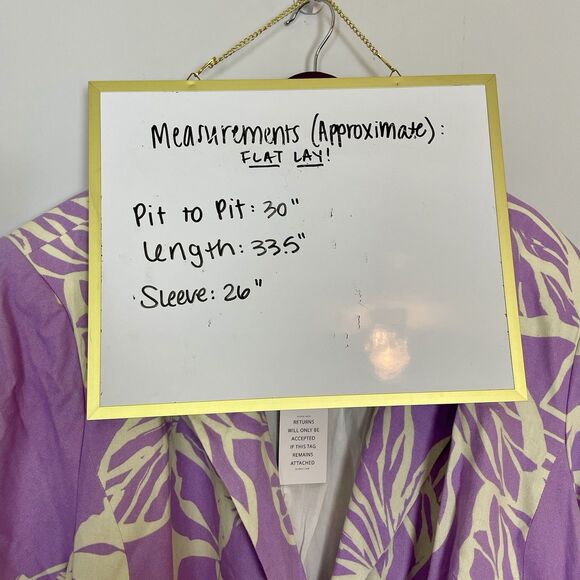 Measurements (Approximate):
FLAT LAY!
Pit to Pit: 30"
Length: 33.5"
Sleeve: 26"
RETURNS
WILL ONLY BE
ACCEPTED
IF THIS TAG
REMAINS
ATTACHED